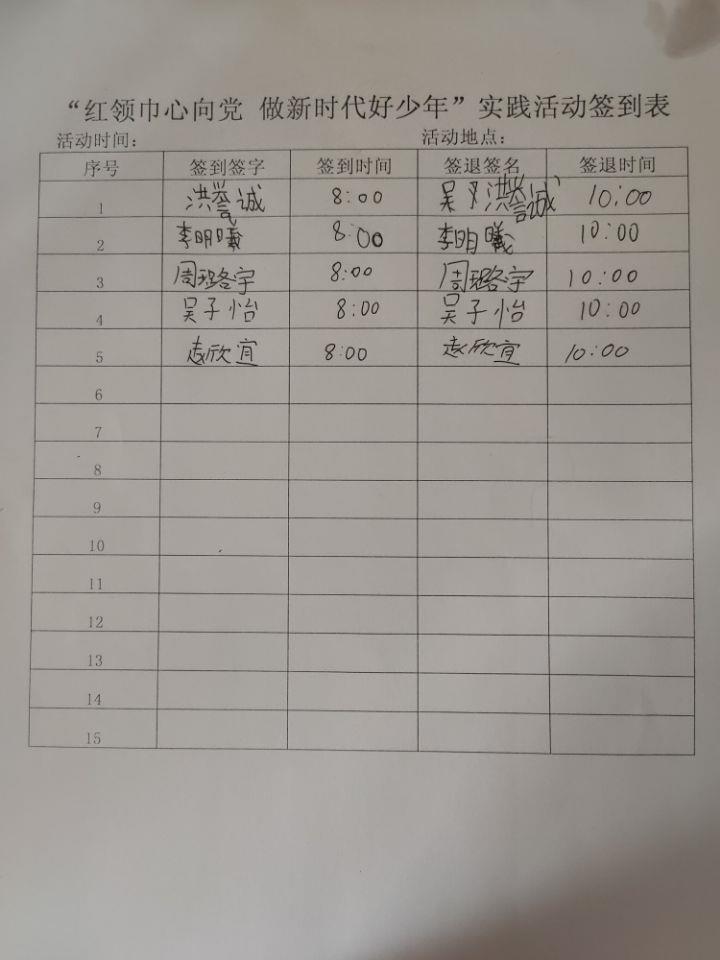 “红领巾心向党 做新时代好少年”实践活动签到表
活动时间： 活动地点：
序号 签到签字 签到时间 签退签名 签退时间
1 洪誉诚 8:00 吴 洪誉诚 10:00
2 李明曦 8:00 李明曦 10:00
3 周珞宇 8:00 周珞宇 10:00
4 吴子怡 8:00 吴子怡 10:00
5 袁欣宜 8:00 袁欣宜 10:00
6
7
8
9
10
11
12
13
14
15